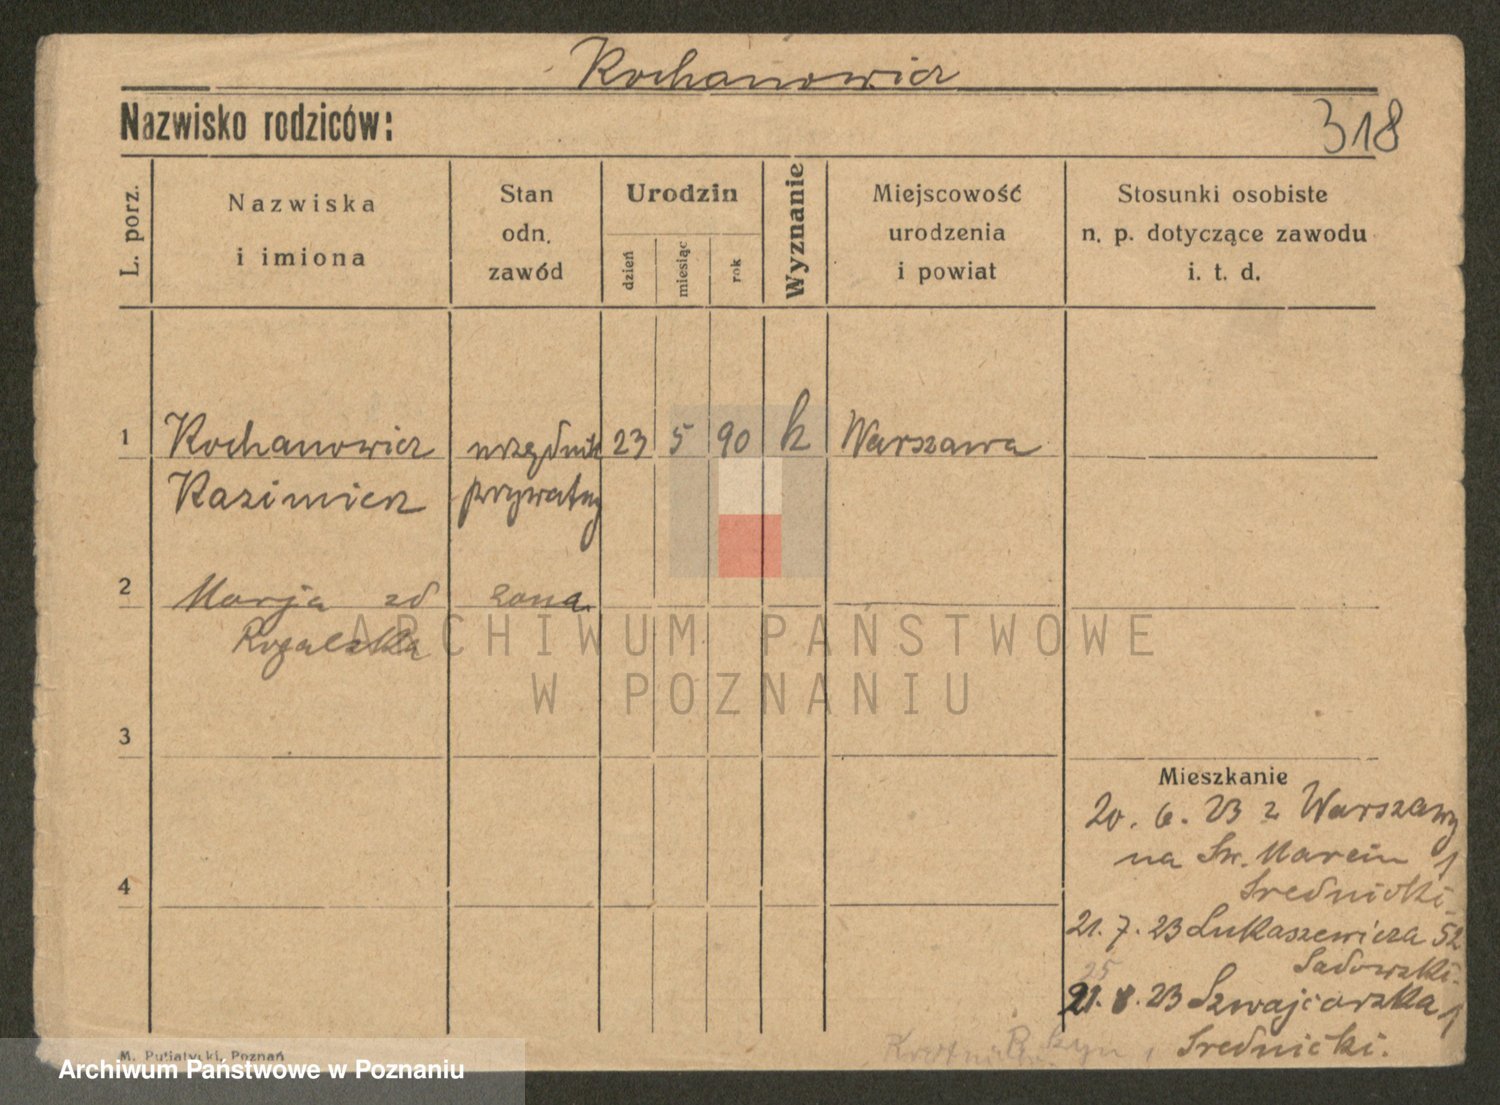 Kochanowicz
Nazwisko rodziców:
318
L. porz.
Nazwiska
i imiona
Stan
odn.
zawód
Urodzin
dzień
miesiąc
rok
Wyznanie
Miejscowość
urodzenia
i powiat
Stosunki osobiste
n. p. dotyczące zawodu
i. t. d.
1 Kochanowicz urzędnik 23 5 90 k Warszawa
Kazimierz prywatny
2 Marja zd żona
Rogalska
ARCHIWUM PAŃSTWOWE
W POZNANIU
3
Mieszkanie
20. 6. 23 z Warszawy
na Św. Marcin 1
4
Srednicki
21. 7. 23 Łukaszewicza 52
Sadowski
25
21. 8. 23 Szwajcarska 1
Srednicki.
M. Putiatycki, Poznań
Archiwum Państwowe w Poznaniu